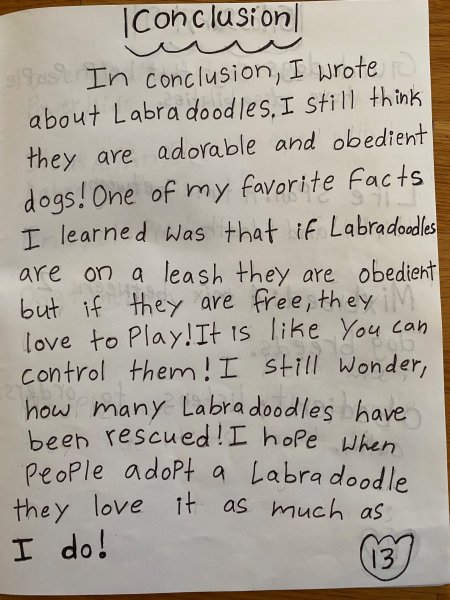 Conclusion
In conclusion, I wrote
about Labradoodles. I still think
they are adorable and obedient
dogs! One of my favorite Facts
I learned was that if Labradoodles
are on a leash they are obedient
but if they are free, they
love to Play! It is like You can
control them! I still wonder,
how many Labradoodles have
been rescued! I hope when
PeoPle adoPt a Labradoodle
they love it as much as
I do!
13